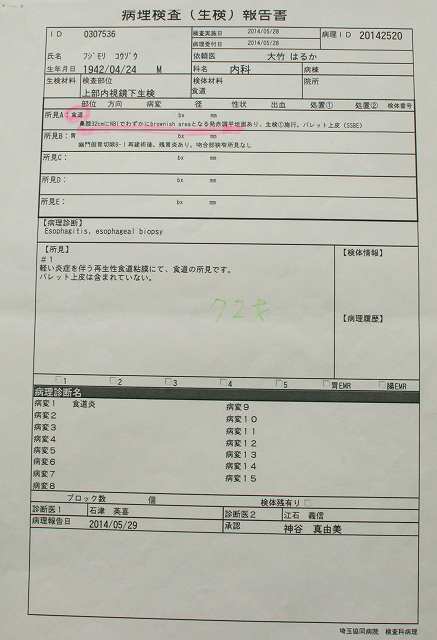 病理検査（生検）報告書
ID 0307536 検査実施日 2014/05/28 病理ID 20142520
病理受付日 2014/05/28
氏名 フジモリ コウゾウ 依頼医 大竹 はるか
生年月日 1942/04/24 M 科名 内科 病棟
生検材料 検査部位 検体材料 院所
上部内視鏡下生検 食道
部位 方向 病変 径 性状 出血 処置① 処置② 検体番号
所見A: 食道 bx mm
鼻腔32cmにNBIでわずかにbrownish areaとなる発赤調平坦面あり、生検①施行。バレット上皮（SSBE）
所見B: 胃 bx mm
幽門側胃切除B-I再建術後、残胃炎あり。吻合部狭窄所見なし
所見C: bx mm
所見D: bx mm
所見E: bx mm
【病理診断】
Esophagitis, esophageal biopsy
【所見】 【検体情報】
＃1
軽い炎症を伴う再生性食道粘膜にて、食道の所見です。
バレット上皮は含まれていない。
72才
【病理履歴】
1 2 3 4 5 胃EMR 腸EMR
病理診断名
病変1 食道炎 病変9
病変2 病変10
病変3 病変11
病変4 病変12
病変5 病変13
病変6 病変14
病変7 病変15
病変8
ブロック数 個 検体残有り
診断医1 石津 英喜 診断医2 江石 義信
病理報告日 2014/05/29 承認 神谷 真由美
埼玉協同病院 検査科病理